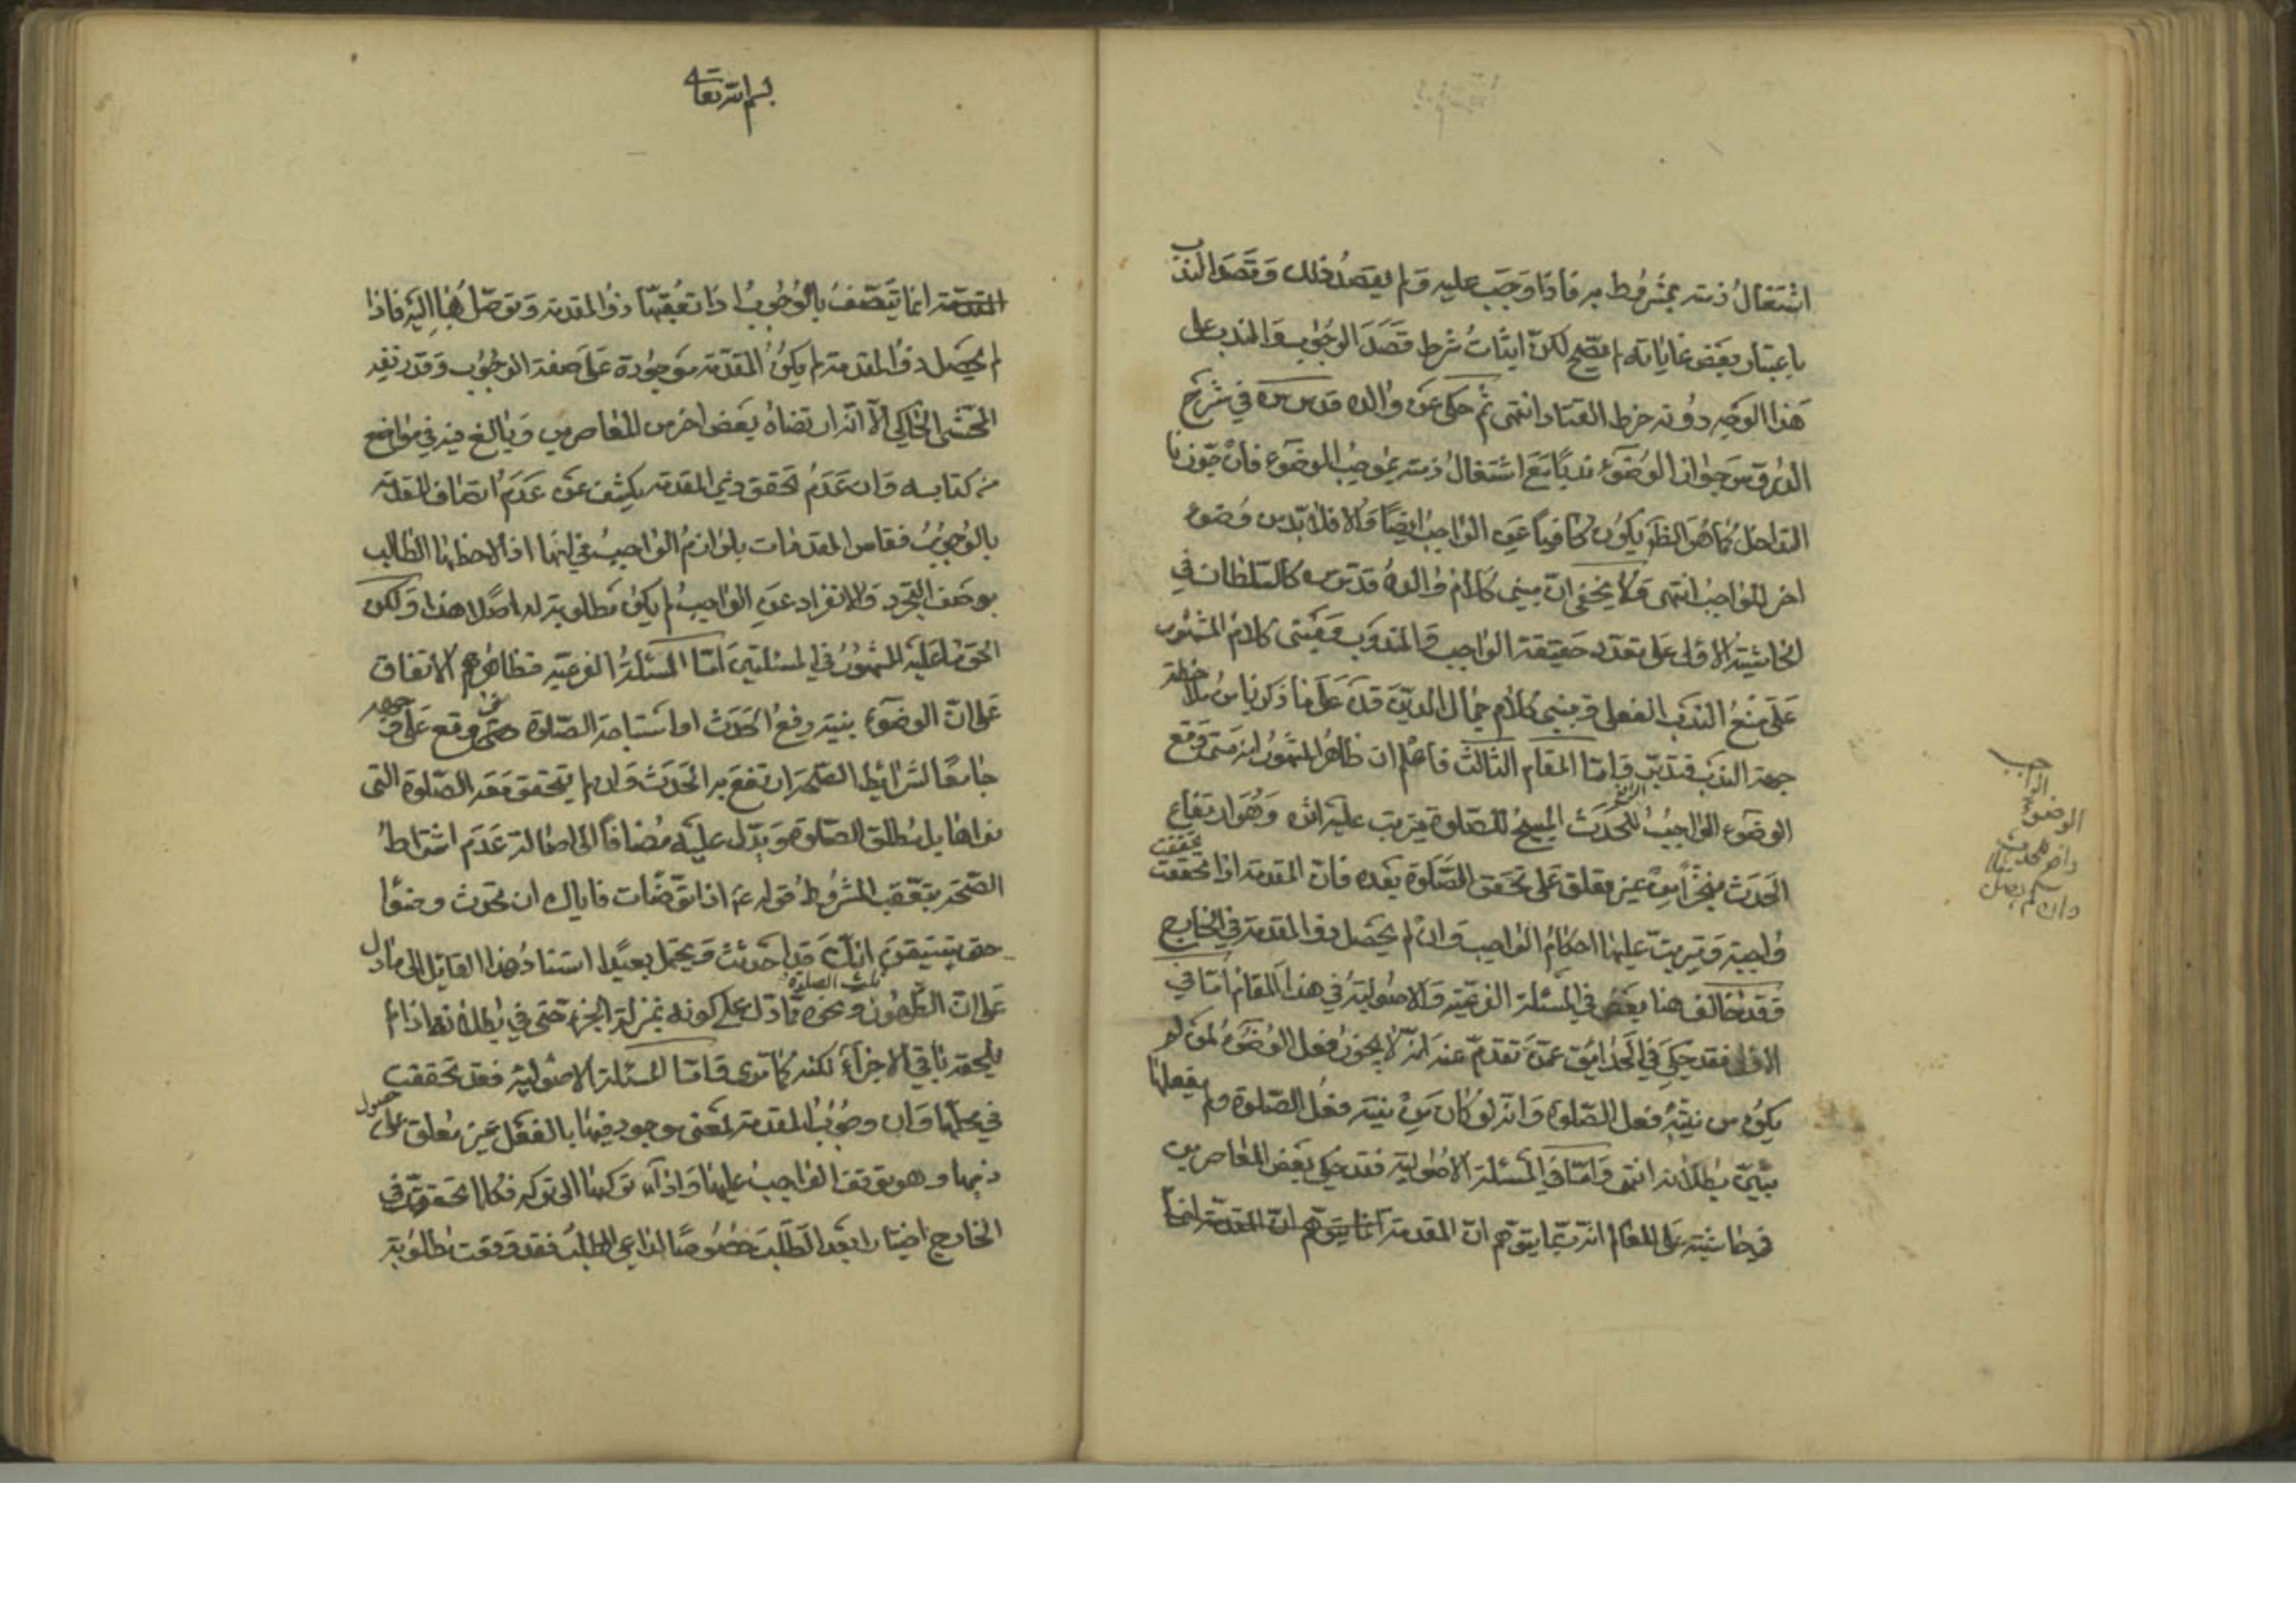 اشتغال ذمته بمشروط به فاذا وجب عليه و لم يقصد ذلك و قصد الندب
باعتبار بعض غاياته لم يصح لكن اثبات شرط قصد الوجوب و الندب على
هذا الوجه دونه خرط القتاد انتهى ثم حكى عن والده قدس سره في شرح
الدروس جواز الوضوء ندبا مع اشتغال ذمته بموجب الوضوء فان جوزنا
التداخل كما هو الظ يكون كافيا عن الواجب ايضا و الا فلا بد من وضوء
اخر للواجب انتهى و لا يخفى ان مبنى كلام والده قدس سره كالسلطان في
الحاشية الاولى على تعدد حقيقة الواجب و المندوب و مبنى كلام المشهور
على منع الندب الفعلي و مبنى كلام جمال الدين قده على ما ذكرنا من ملاحظة
جهة الندب فتدبر و اما المقام الثالث فاعلم ان ظاهر المشهور انه متى وقع
الوضوء الواجب الرافع للحدث المبيح للصلوة يترتب عليه اثره و هو ارتفاع
الحدث منجزا من غير معلق على تحقق الصلوة بعده فان المقدمة اذا تحققت تحققت
واجبة و يترتب عليها احكام الواجب و ان لم يحصل ذو المقدمة في الخارج
و قد خالف هنا بعض في المسئلة الفرعية و الاصولية في هذا المقام اما في
الاولى فقد حكي في الحدائق عمن تقدم عنه انه لا يجوز فعل الوضوء لمن لم
يكن من نيته فعل الصلوة و انه لو كان من نيته فعل الصلوة و لم يفعلها
تبين بطلانه انتهى و اما في المسئلة الاصولية فقد حكي بعض المعاصرين
في حاشيته على المعالم انه ربما يتوهم ان المقدمة انما يتوهم ان المقدمة انما
الوضوء الواجب
رافع للحدث
و ان لم يصل
بسم الله تعالى
المقدمة انما يتصف بالوجوب اذا تعقبها ذو المقدمة و توصل بها اليه فاذا
لم يحصل ذو المقدمة لم يكن المقدمة موجودة على صفة الوجوب و قد زيفه
المحشي الحاكي الا انه ارتضاه بعض اخر من المعاصرين و بالغ فيه في مواضع
من كتابه و ان عدم تحقق ذي المقدمة يكشف عن عدم اتصاف المقدمة
بالوجوب فقاس المقدمات بلوازم الواجب في انها اذا لاحظها الطالب
بوصف التجرد و الانفراد عن الواجب لم يكن مطلوبة له اصلا هذا و لكن
الحق ما عليه المشهور في المسئلتين اما المسئلة الفرعية فظاهرهم الاتفاق
على ان الوضوء بنية رفع الحدث او استباحة الصلوة متى وقع على وجهه
جامعا لشرايط الصحة ارتفع به الحدث و ان لم يتحقق بعد الصلوة التي
نواها بل مطلق الصلوة و يدل عليه مضافا الى اصالة عدم اشتراط
الصحة بتعقب المشروط قوله ع اذا توضأت فاياك ان تحدث وضوءا
حتى تستيقن انك قد احدثت و يحتمل بعيدا استناد هذا القائل الى ما دل
على ان الطهور ثلث الصلوة و نحوه مما دل على كونه بمنزلة الجزء حتى في بطلانه اذا لم
يلحقه باقي الاجزاء لكنه كما ترى و اما المسئلة الاصولية فقد تحققت
في محلها و ان وجوب المقدمة لمعنى موجود فيها بالفعل غير معلق على حصول
ذيها و هو توقف الواجب عليها و اداء تركها الى تركه فكلما تحققت في
الخارج اختيارا بعد الطلب خصوصا لداعي الطلب فقد وقعت مطلوبة